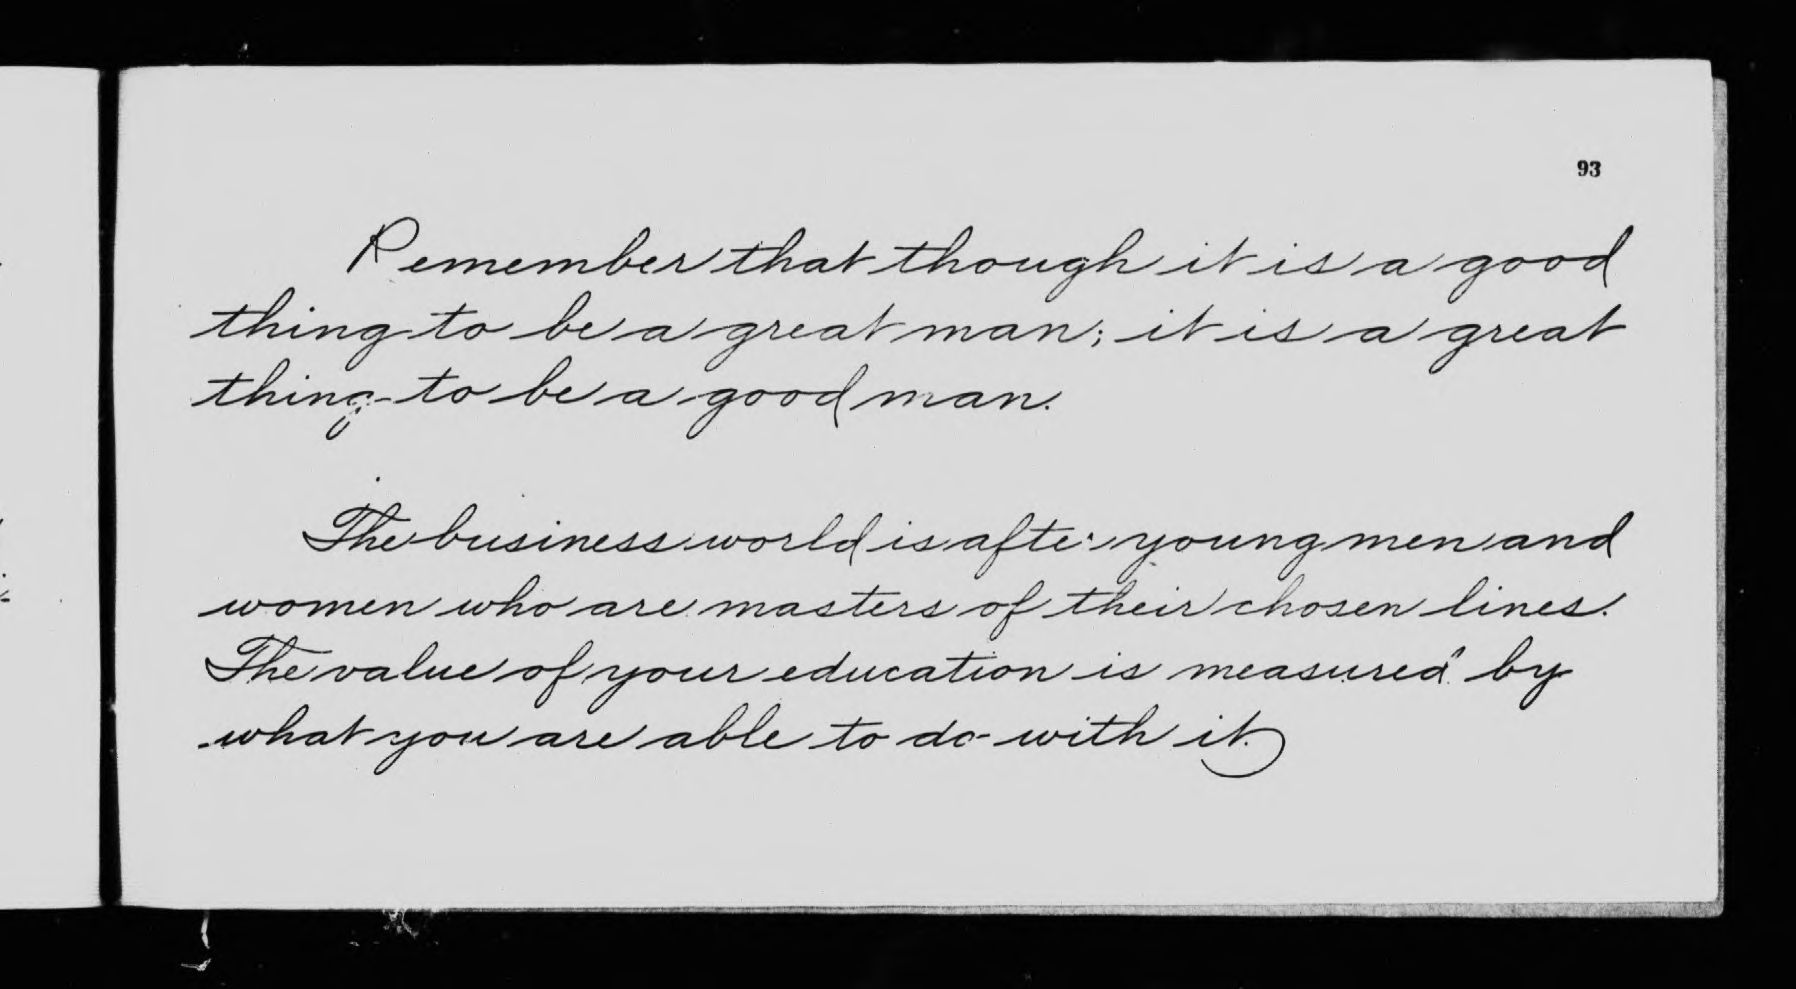 93
Remember that though it is a good
thing to be a great man; it is a great
thing to be a good man.
The business world is after young men and
women who are masters of their chosen lines.
The value of your education is measured by
what you are able to do with it.